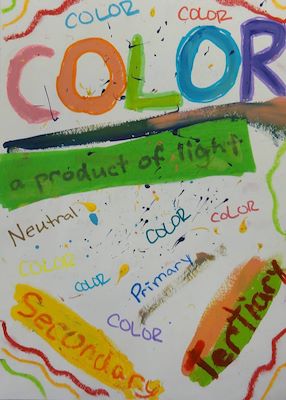 COLOR COLOR
COLOR
a product of light
Neutral
COLOR COLOR
COLOR
COLOR
Primary
COLOR
Secondary
Tertiary